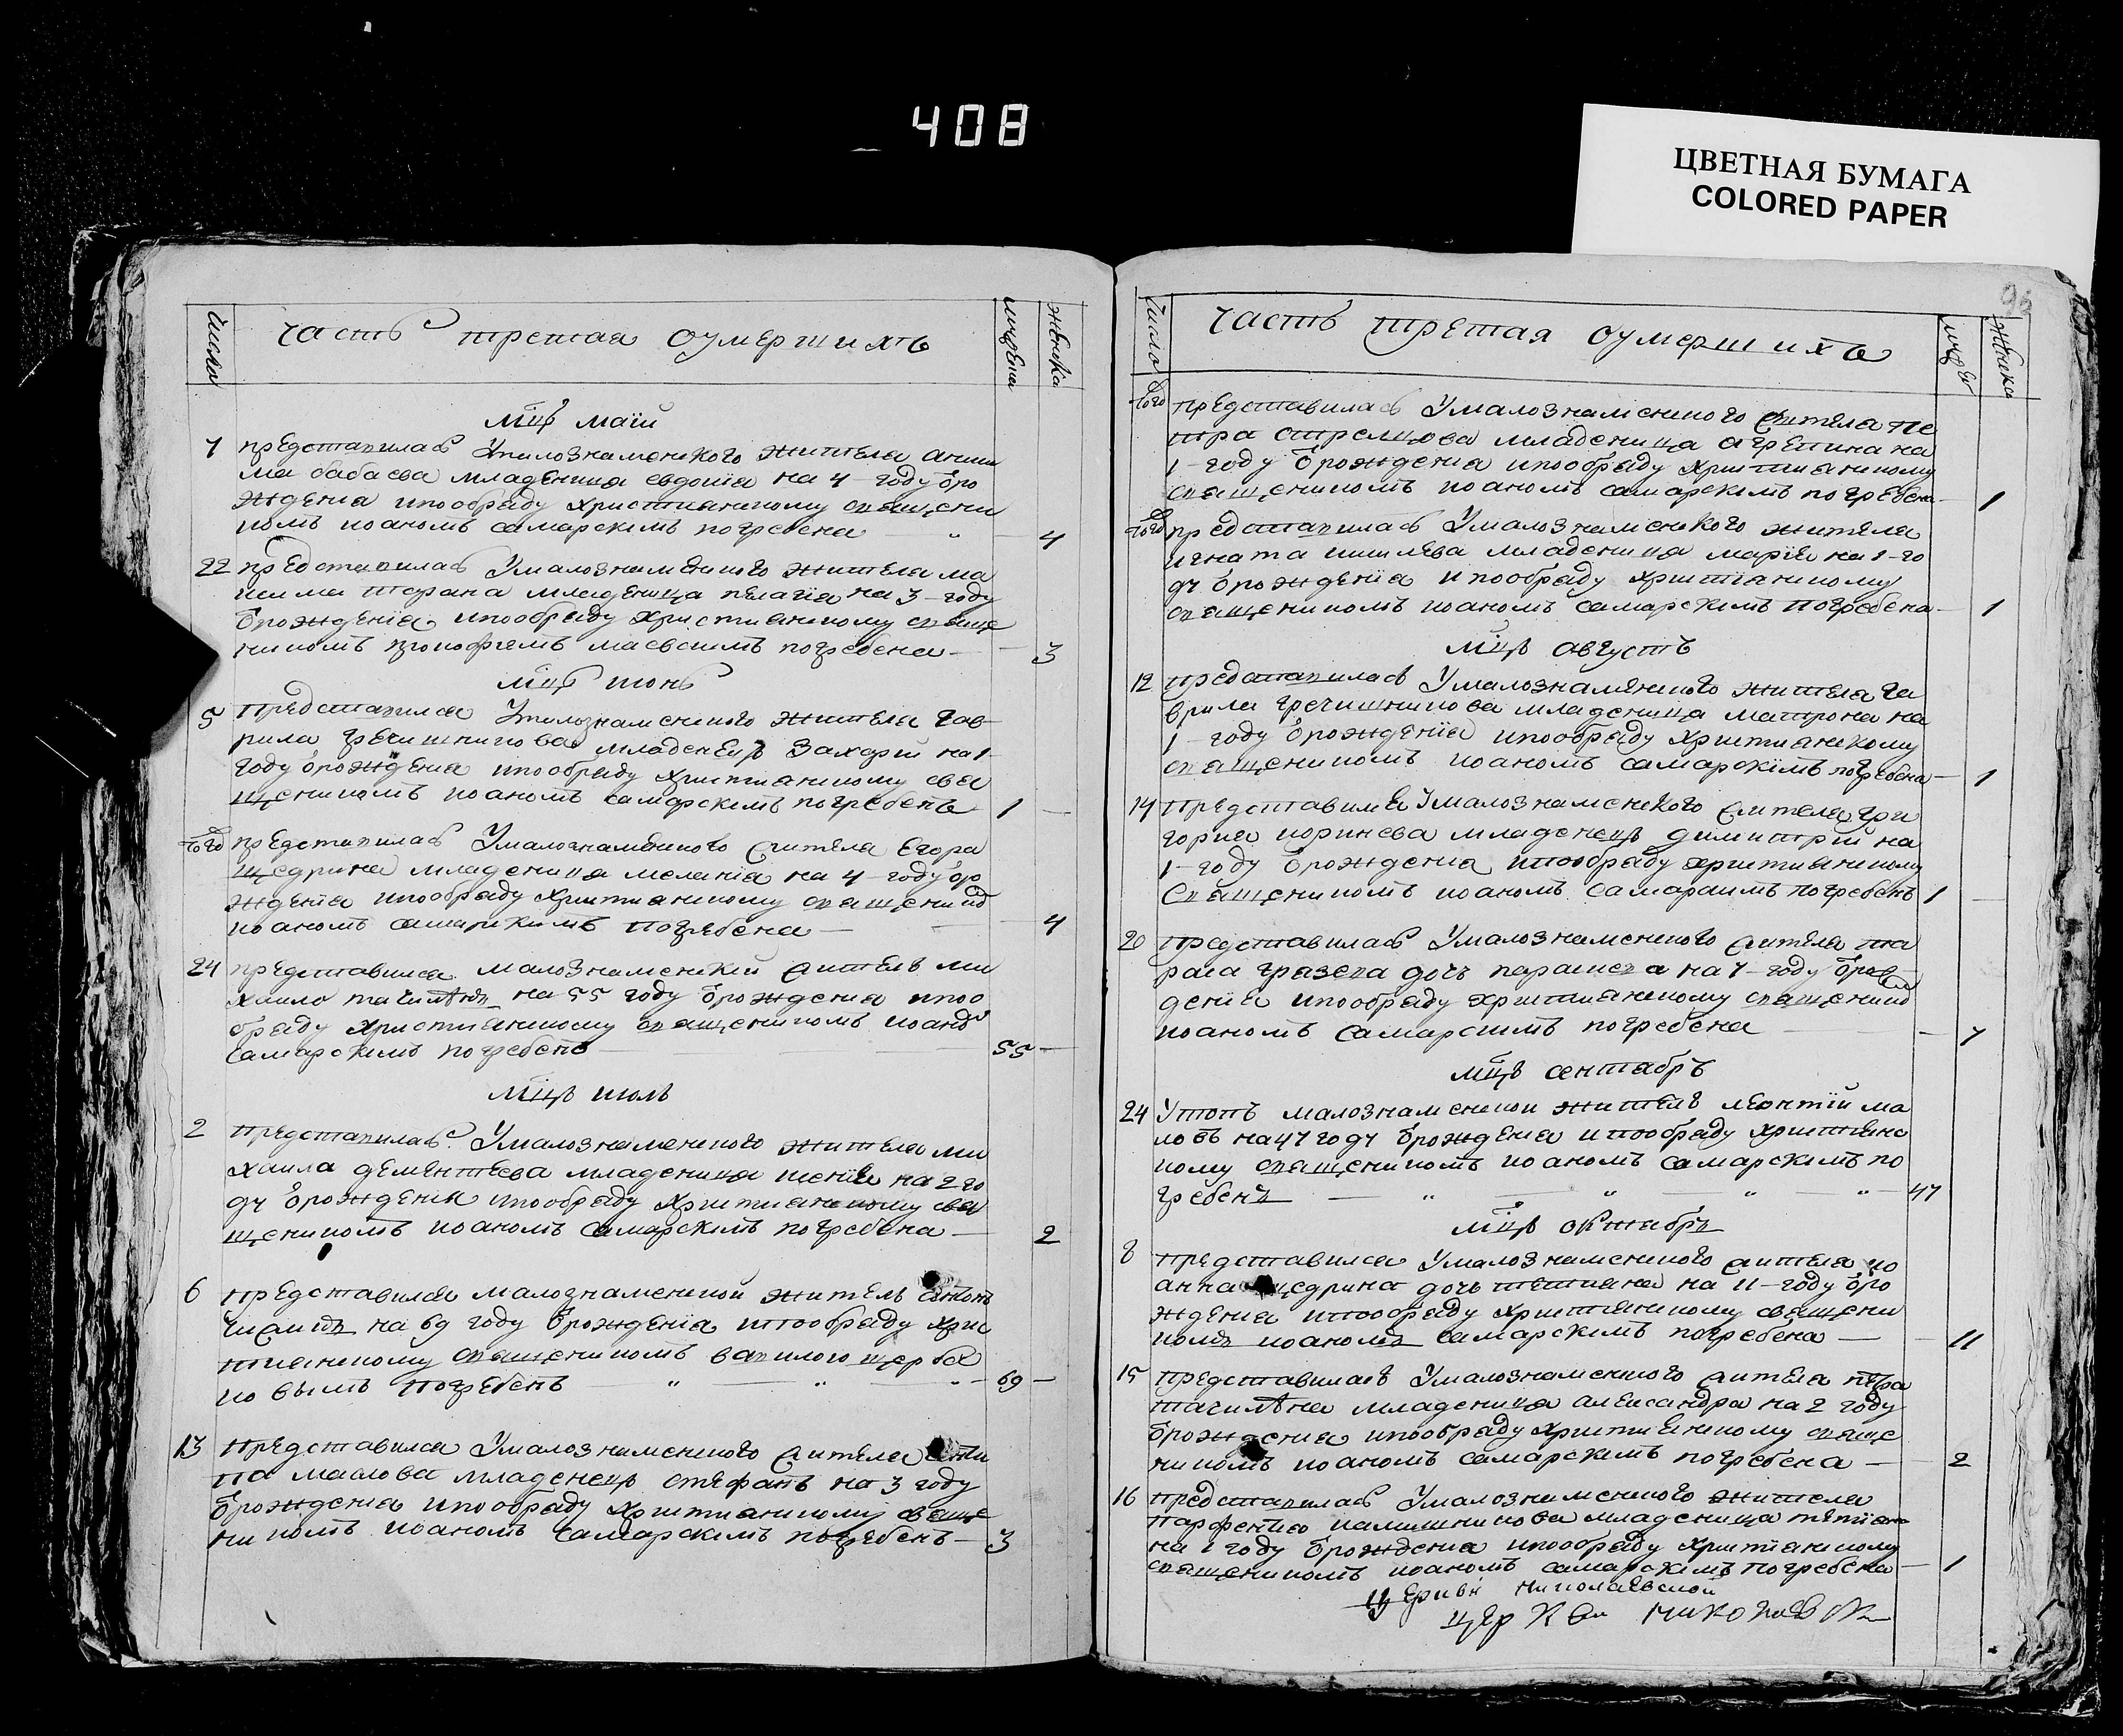 408
ЦВЕТНАЯ БУМАГА
COLORED PAPER
число
часть третая оумершихъ
мужеска
женска
мцъ маiи
7 представилась Умалознаменского жителя
ма бабаева младеница евдокiа на 4 году ѿро
жденiа ипообряду христианскому священи
комъ иоаномъ самарскимъ погребена 4
22 представилась Умалознаменского жителя ма
ксима младеница пелагiа на 3 году
ѿрожденiа ипообряду христианскому свяще
никомъ маевскимъ погребена 3
мцъ июнь
5 Представился Умалознаменского жителя гав
рила гречишникова младенецъ захарiй на 1
году ѿрожденiа ипообряду христианскому свя
щеникомъ иоаномъ самарскимъ погребенъ 1
того представилась Умалознаменского жителя Егора
щедрина младеница меланiа на 4 году ѿро
жденiа ипообряду христианскому священико
иоаномъ самарскимъ погребена 4
24 представился малознаменский житель ми
хаило на 55 году ѿрожденiа ипоо
бряду христианскому священикомъ иоано
самарскимъ погребенъ 55
мцъ июль
2 представилась Умалознаменского жителя ми
хаила дементьева младеница на 2 го
ду ѿрожденiя ипообряду христианскому свя
щеникомъ иоаномъ самарскимъ погребена 2
6 представился малознаменской житель антонъ
на 69 году ѿрожденiа ипообряду хри
тианскому священикомъ вакилого щерба
ковымъ погребенъ 69
13 представился Умалознаменского жителя
па маслова младенецъ стефанъ на 3 году
ѿрожденiа ипообряду христианскому свяще
никомъ иоаномъ самарскимъ погребенъ 3
95
число
часть третая оумершихъ
того представилась Умалознаменского жителя пе
тра стрелцова младеница агрепина на
1 году ѿрожденiа ипообряду христианскому
священикомъ иоаномъ самарскимъ погребена 1
того представилась Умалознаменского жителя
игната младеница марiя на 1 го
ду ѿрожденiа ипообряду христианскому
священикомъ иоаномъ самарскимъ погребена 1
мцъ августъ
12 представилась Умалознаменского жителя га
врила гречишникова младеница матрона на
1 году ѿрожденiа ипообряду христианскому
священикомъ иоаномъ самарскимъ погребена 1
14 Представился Умалознаменского жителя гри
гориа коринева младенецъ димитрiй на
1 году ѿрожденiа ипообряду христианскому
священикомъ иоаномъ самарскимъ погребенъ 1
20 представилась Умалознаменского жителя та
раса дочь на 7 году ѿрож
денiа ипообряду христианскому священико
иоаномъ самарскимъ погребена 7
мцъ сентабръ
24 Утопъ малознаменской житель леонтiй ма
ловъ на 47 году ѿрожденiа ипообряду христианс
кому священикомъ иоаномъ самарскимъ по
гребенъ 47
мцъ октябръ
8 представился Умалознаменского жителя ио
анна щедрина дочь на 11 году ѿро
жденiа ипообряду христианскому священи
комъ иоаномъ самарскимъ погребена 11
15 представилась Умалознаменского жителя петра
младеница александра на 2 году
ѿрожденiа ипообряду христианскому свяще
никомъ иоаномъ самарскимъ погребена 2
16 представилась Умалознаменского жителя
младеница
на 1 году ѿрожденiа ипообряду христианскому
священикомъ иоаномъ самарскимъ погребена 1
церкви николаевской